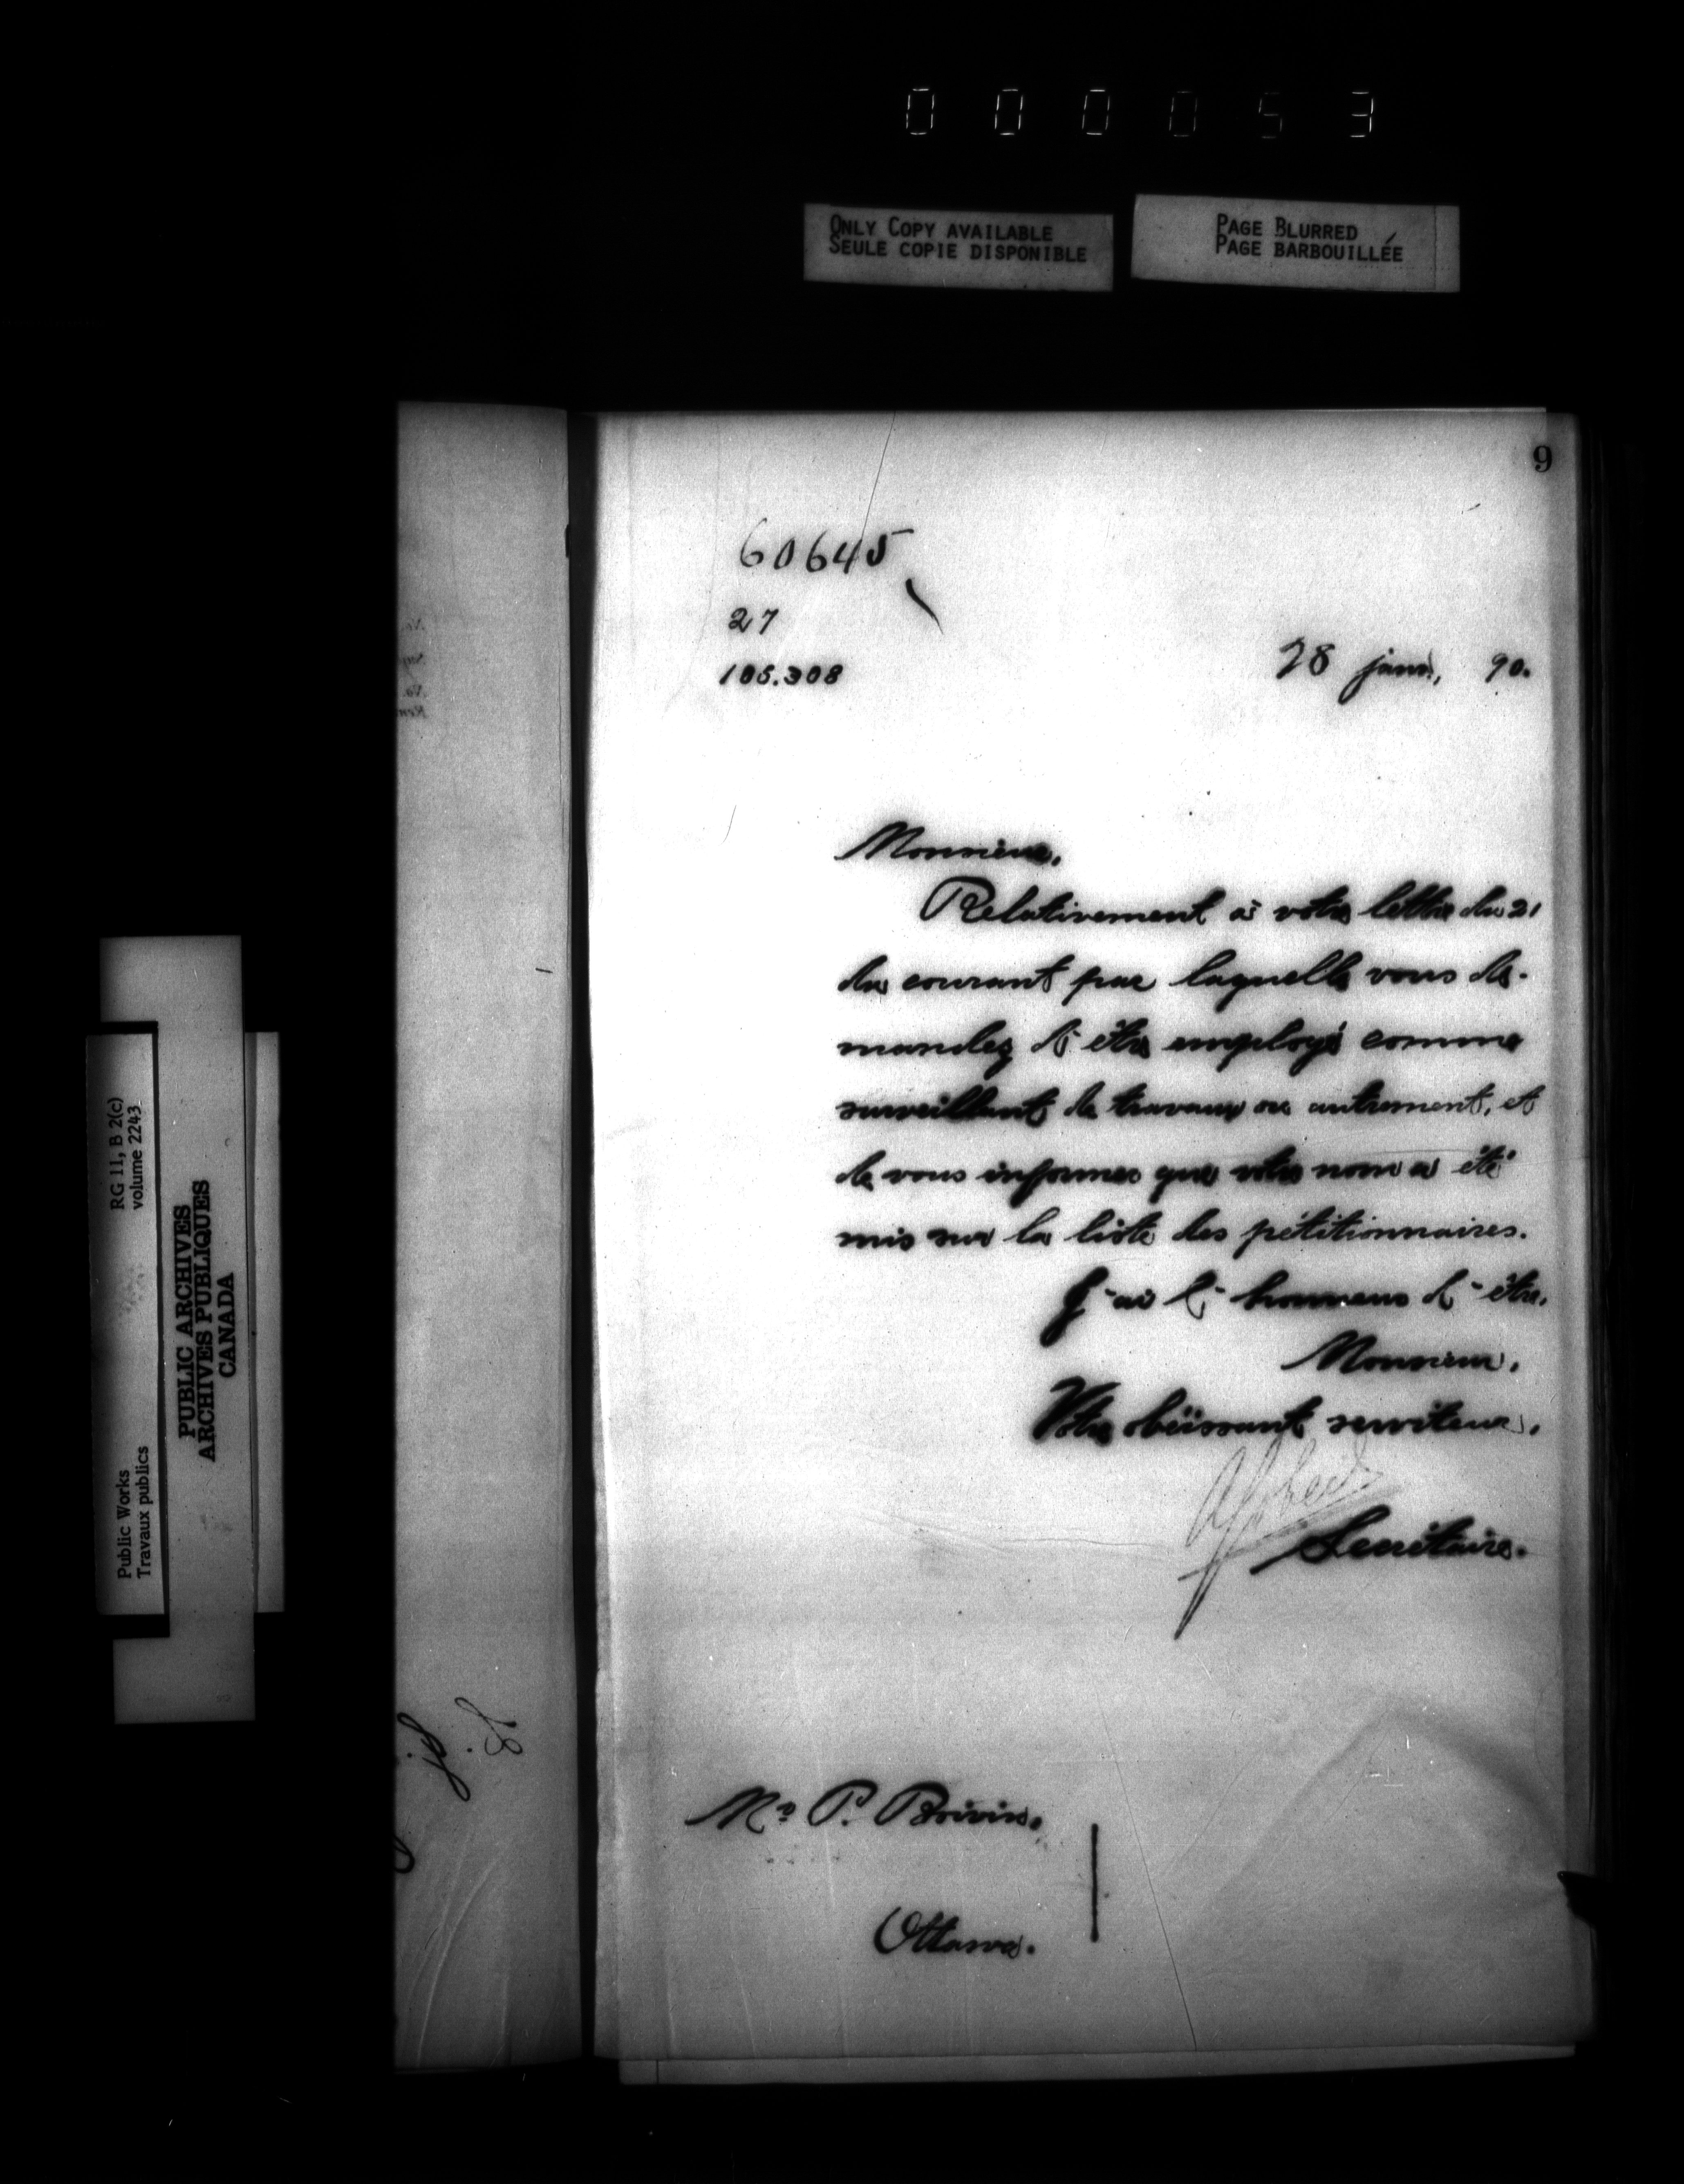 000053
ONLY COPY AVAILABLE
SEULE COPIE DISPONIBLE
PAGE BLURRED
PAGE BARBOUILLÉE
9
60645
27
105.308
28 janv. 90.
Monsieur,
Relativement à votre lettre du 21
du courant par laquelle vous de-
mandez d'être employé comme
surveillant de travaux ou autrement, et
de vous informer que votre nom a été
mis sur la liste des pétitionnaires.
J'ai l'honneur d'être,
Monsieur,
Votre obéissant serviteur,
Secrétaire.
Mr P. Boivin,
Ottawa.
RG 11, B 2(c)
volume 2243
Public Works
Travaux publics
PUBLIC ARCHIVES
ARCHIVES PUBLIQUES
CANADA